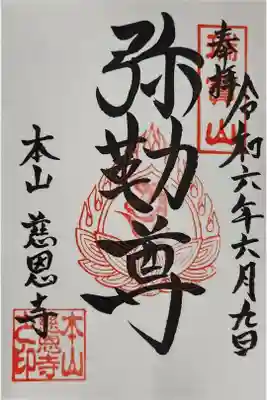 奉拝
令和六年六月九日
弥勒尊
本山 慈恩寺
瑞寳山
本山
慈恩寺
之印